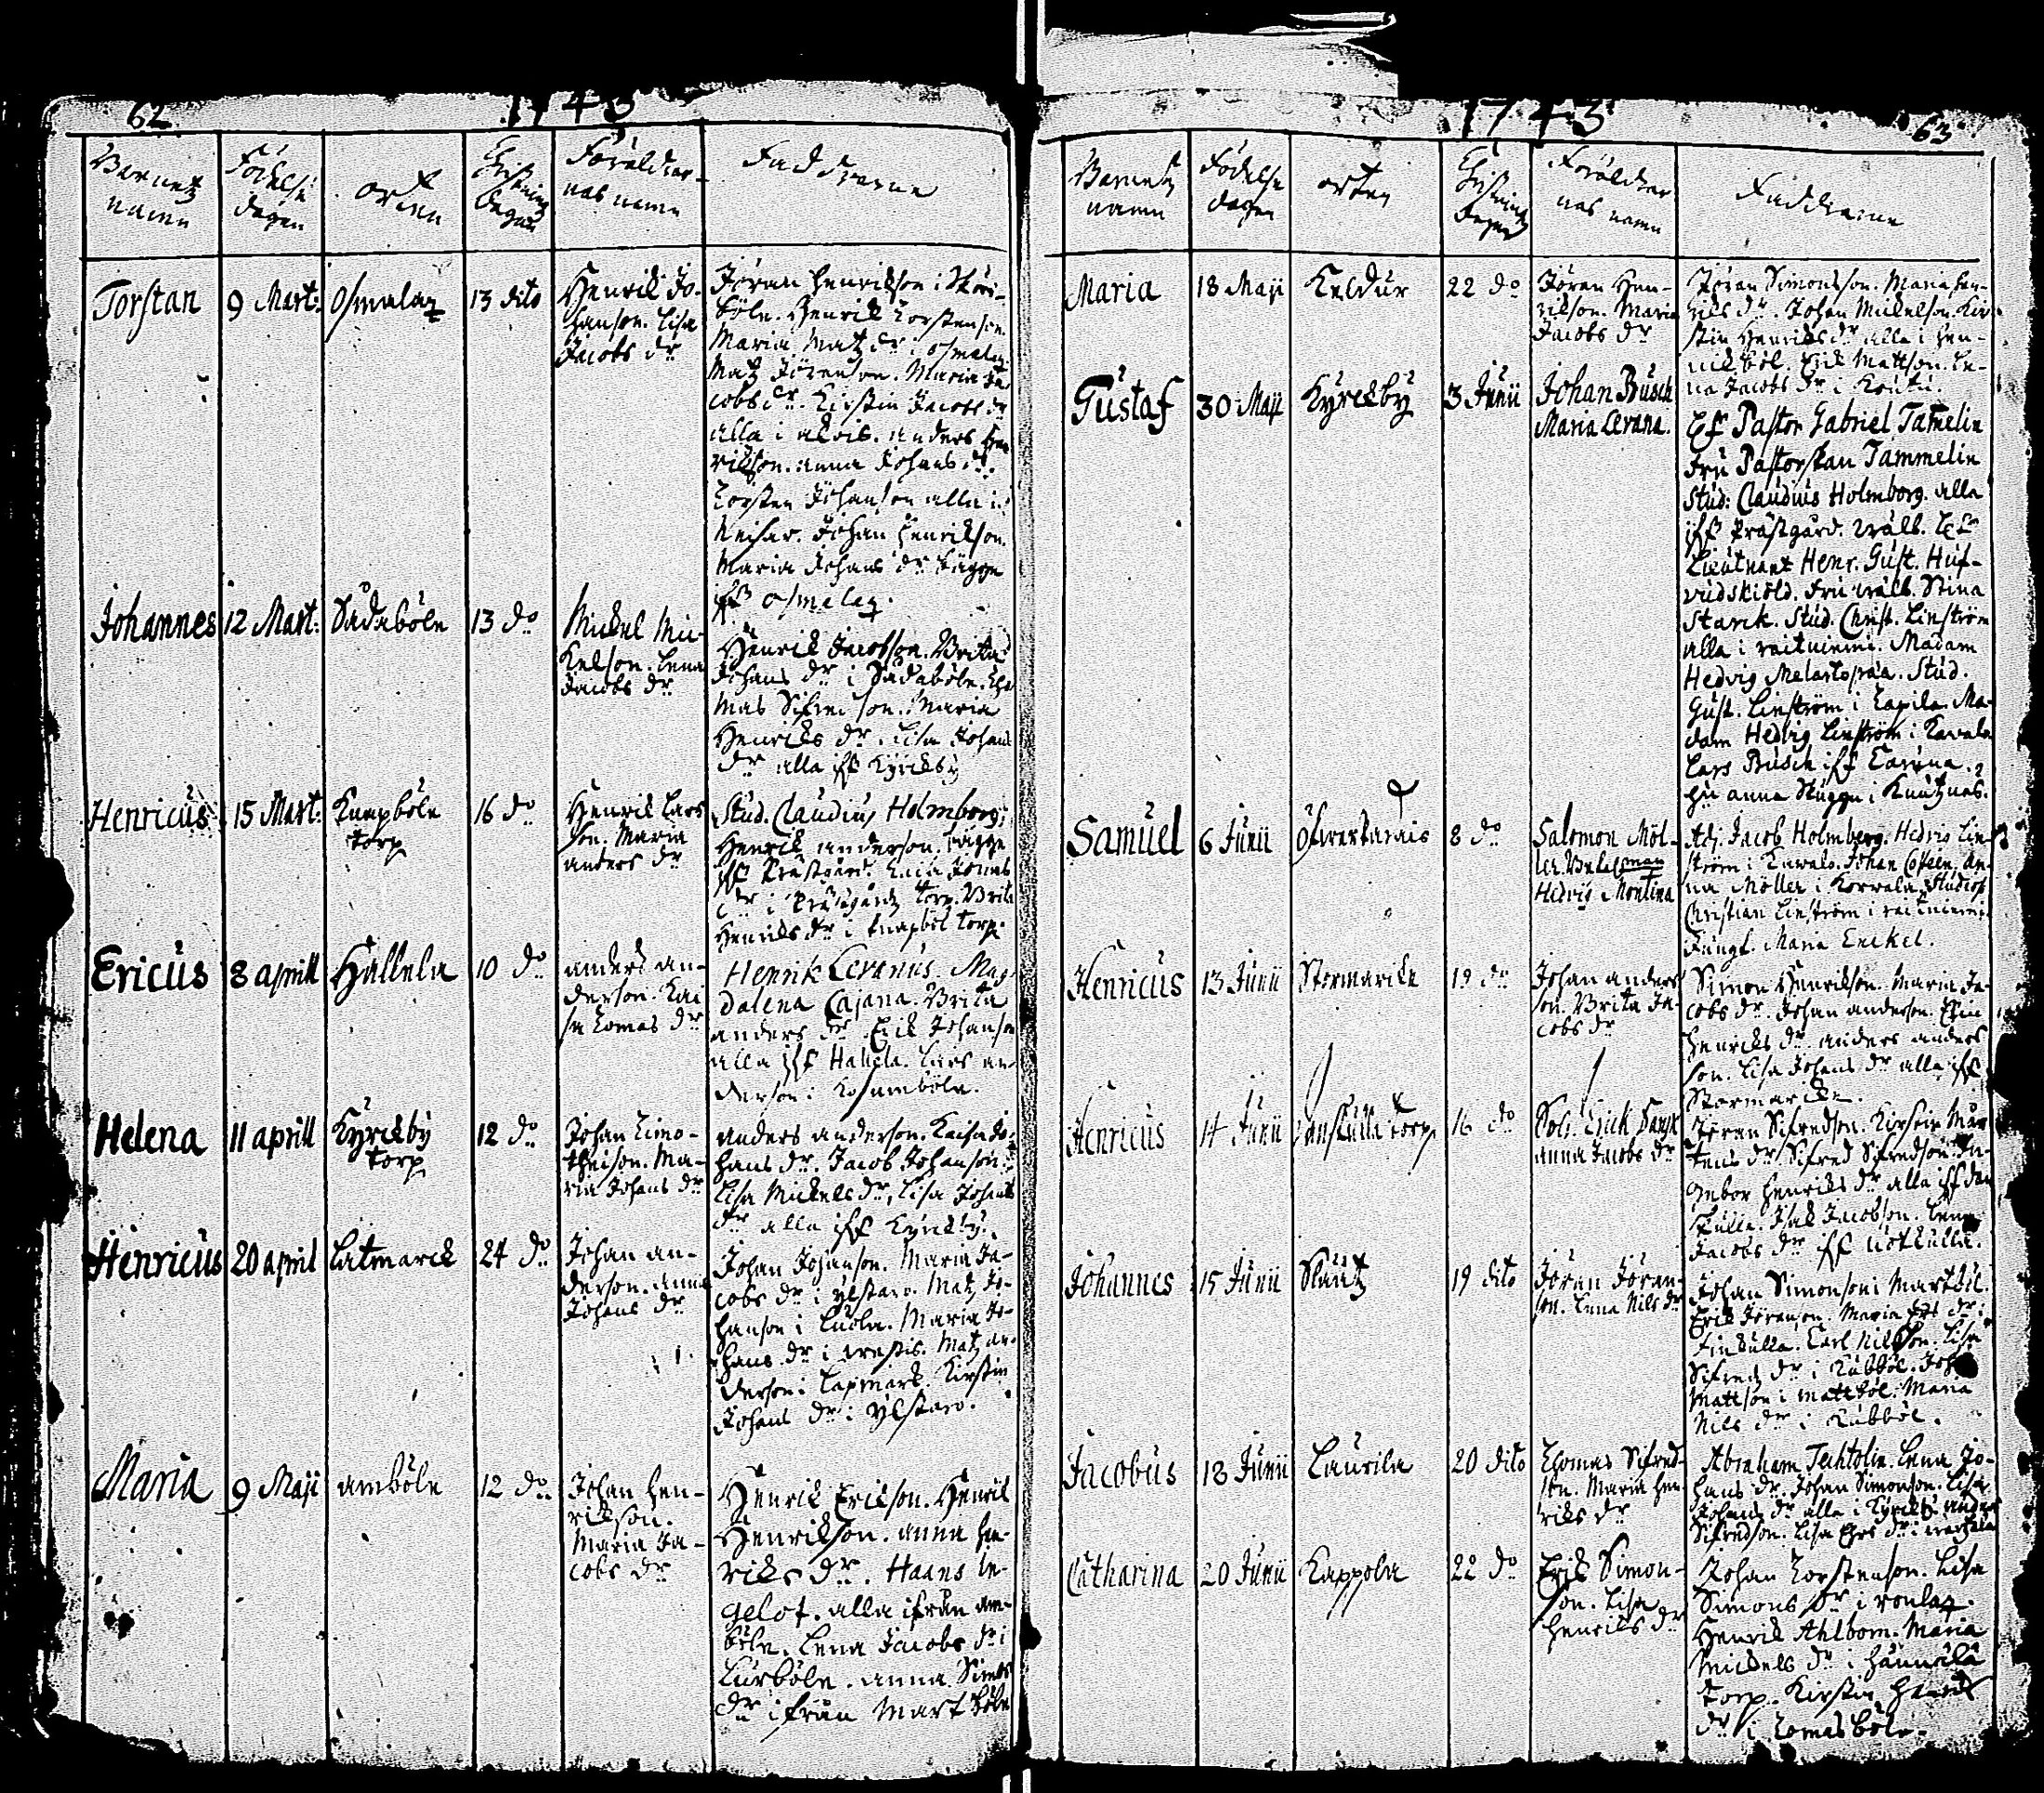 62
1743
Barnetz namn
Födelse dagen
orten
Christnings dagen
Föräldrar-
nas namn
Faddrarne
Torstan
9 Mart:
Osmalax
13 dito
Henrik Jo-
hanson. Lisa
Jacobs dr
Jöran Henrikson i
böle. Henrik Torstenson.
Maria Matz dr i Osmalax.
Matz Jöranson. Maria Ja-
cobs dr. Kirstin Jacobs dr
alla i alvis. anders Hen
rikson. anna Johans dr.
Torsten Johanson alla i
Johan Henrikson.
Maria Johans dr bägge
iff Osmalax.
Johannes
12 Mart:
Dadaböle
13 do
Mickel Mi-
kelson. Lena
Jacobs dr
Henrik Jacobson. Brita
Johans dr i Dadaböle. Tho
mas Sifredson. Maria
Henriks dr. Lisa Johans
dr alla iff Kyrckby
Henricus
15 Mart:
Knapböle
torp
16 do
Henrik Lars
son. Maria
anders dr
Stud. Claudius Holmborg.
Henrik anderson. bägge
iff Prästgård. Jonas
dr i Prästgårdz torp. Brita
Henriks dr i Knapböl torp.
Ericus
8 aprill
Hallela
10 do
anders an-
derson. Kai
sa Tomas dr
Henrik Levanus. Mag-
dalena Cajana. Brita
anders dr Erik Johanson
alla iff Hallela. Lars an-
derson i Kosamböle.
Helena
11 aprill
Kyrckby
torp
12 do
Johan Timo-
theison. Ma-
ria Johans dr
anders anderson. Kaisa Jo-
hans dr. Jacob Johanson.
Lisa Mickels dr, Lisa Johans
dr alla iff Kyrckby.
Henricus
20 april
Latmarck
24 do
Johan an-
derson. anna
Johans dr
Johan Johanson. Maria Ja-
cobs dr i ylstaro. Matz Jo-
hanson i Maria Jo-
hans dr i Matz an-
derson i Lapmark. Kirstin
Johans dr i ylstaro.
Maria
9 Maji
amböle
12 do
Johan Hen-
rikson.
Maria Ja-
cobs dr
Henrik Erikson. Henrik
Henrikson. anna Hen-
riks dr. Haans In-
gelof. alla ifrån am-
böle. Lena Jacobs dr i
Lurböle. anna Simos
dr ifrån Martböle
1743
63
Barnetz
namn
Födelse
dagen
orten
Christnings
dagen
Föräldrar
nas namn
Faddrarne
Maria
18 Maji
Keldur
22 do
Jöran Hen-
rikson. Maria
Jacobs dr
Jöran Simonson. Maria Hen-
riks dr. Johan Mickelson. Kir-
stin Henriks dr alla i Hen-
rikböl. Erik Mattson. Le-
na Jacobs dr i Koutu.
Gustaf
30 Maji
Kyrckby
3 Junii
Johan Busch
Maria Levana.
Pastor Gabriel Tamelin
Fru Pastorskan Tammelin
Stud: Claudius Holmborg. alla
iff Prästgård. wälb. H
Lieutnant Henr. Gust. Huf-
vudskiöld. Fru wälb. Stina
Starck. Stud. Christ. Linström
alla i raitniemi. Madam
Hedvig Melartopæa. Stud.
Gust. Linström i Lapila. Ma-
dam Hedvig Linström i Kavala
Lars Busch iff
anna Skugge i Knutznäs.
Samuel
6 Junii
Öfverkurais
8 do
Salomon Möl-
ler.
Hedvig Montina
Adj. Jacob Holmberg. Hedvig Lin-
ström i Kavala. Johan An-
na Möller i Korwala. Studios.
Christian Linström i raitniemi.
Jungf. Maria Enckel.
Henricus
13 Junii
Stormarika
19 do
Johan anders
son. Brita Ja-
cobs dr
Simon Henrikson. Maria Ja-
cobs dr. Johan anderson. Elin
Henriks dr. anders anders
son. Lisa Johans dr alla iff
Stormarika.
Henricus
14 Junii
Danskulla torp
16 do
Sold. Erick Dansk
anna Jacobs dr
Jöran Sifredson. Kirstin Mår
tens dr. Sifred Sifredson. In-
gebor Henriks dr alla iff Dan
skulla. Isak Jacobson. Lena
Jacobs dr iff notkulla.
Johannes
15 Junii
Skutz
19 dito
Jöran Jöran-
son. Lena Nils dr
Johan Simonson i Martböl.
Erik Jöranson. Maria Ers dr i
Finkulla. Carl Nilsson. Lisa
Sifredz dr i Kubböl. Joh
Mattson i Mattböl. Maria
Nils dr i Kubböl.
Jacobus
18 Junii
Laurila
20 dito
Thomas Sifred-
son. Maria Hen-
riks dr
Abraham Techtolin. Lena Jo-
hans dr. Johan Simonson. Lisa
Johans dr alla i Kyrckby. anders
Sifredson. Lisa Ers dr i
Catharina
20 Junii
Kappola
22 do
Erik Simon-
son. Lisa
Henriks dr
Johan Torstenson. Lisa
Simons dr i ronlax.
Henrik Ahlbom. Maria
Mickels dr i Hannula
torp. Kirstin Henrik
dr i Tomasböle.